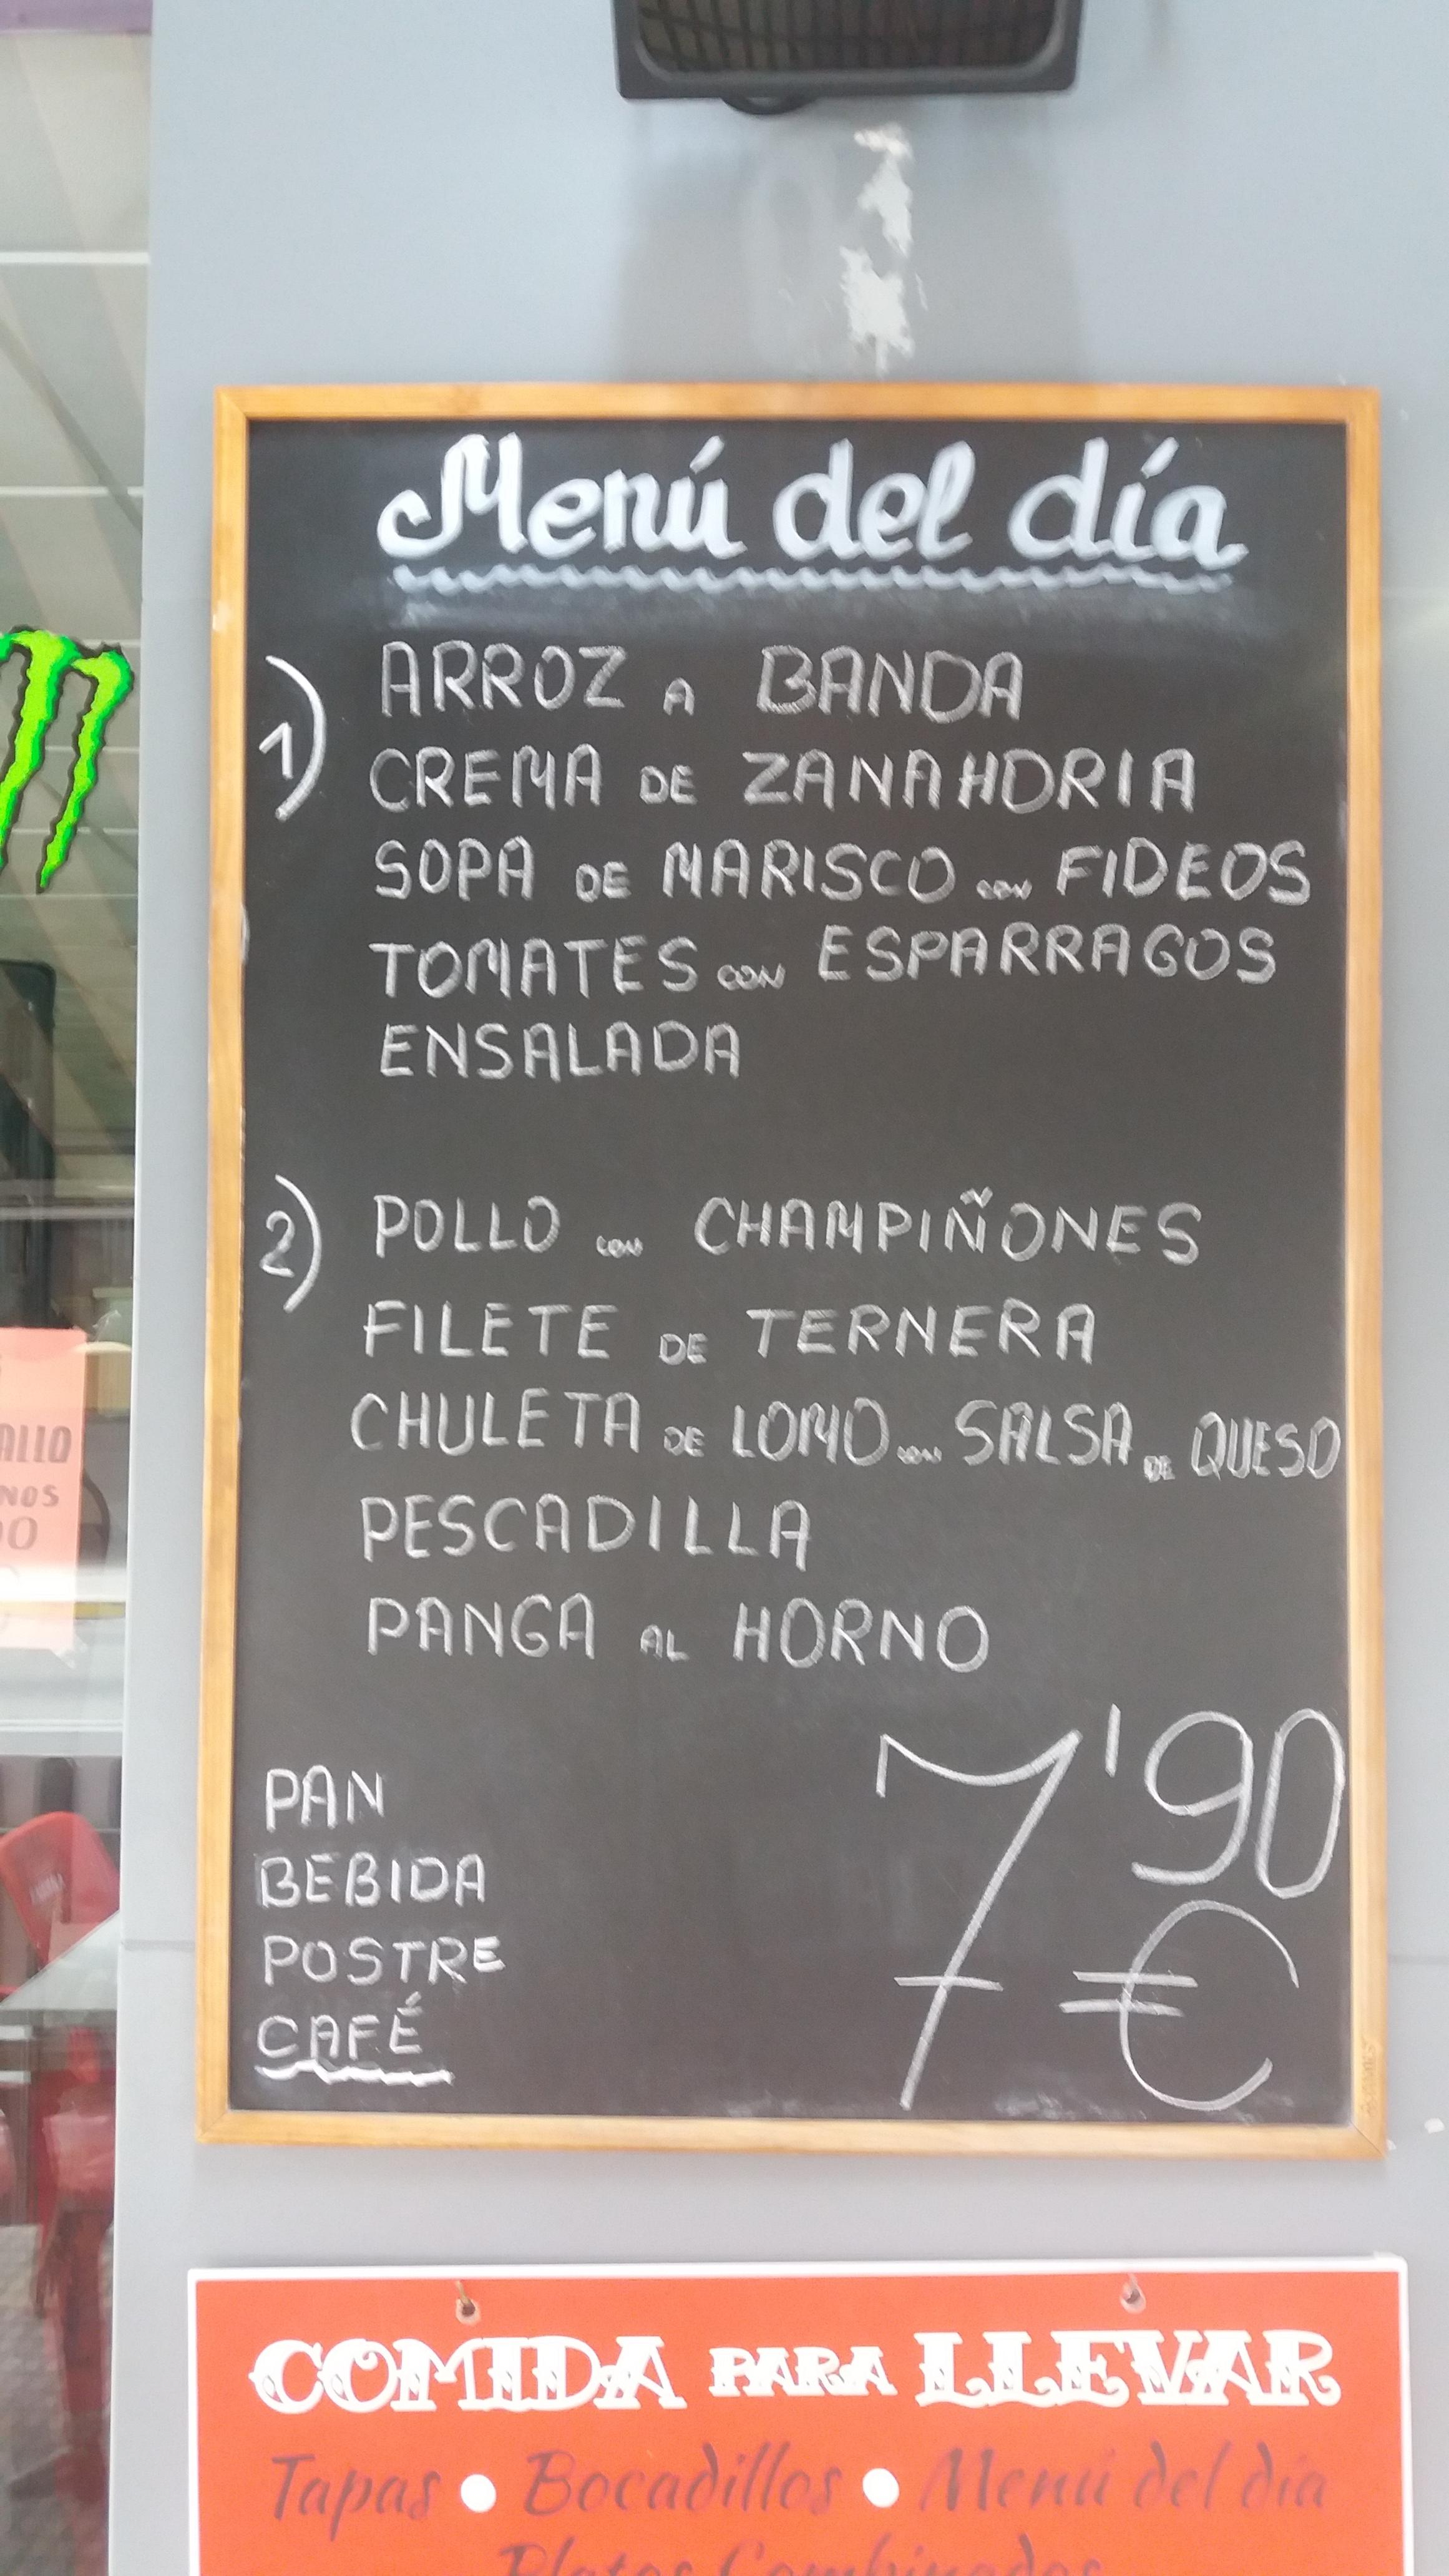 Menú del día
1) ARROZ A BANDA
CREMA DE ZANAHORIA
SOPA DE MARISCO CON FIDEOS
TOMATES CON ESPARRAGOS
ENSALADA
2) POLLO CON CHAMPIÑONES
FILETE DE TERNERA
CHULETA DE LOMO CON SALSA DE QUESO
PESCADILLA
PANGA AL HORNO
7'90 €
PAN
BEBIDA
POSTRE
CAFÉ
COMIDA PARA LLEVAR
Tapas • Bocadillos • Menú del día
Platos Combinados